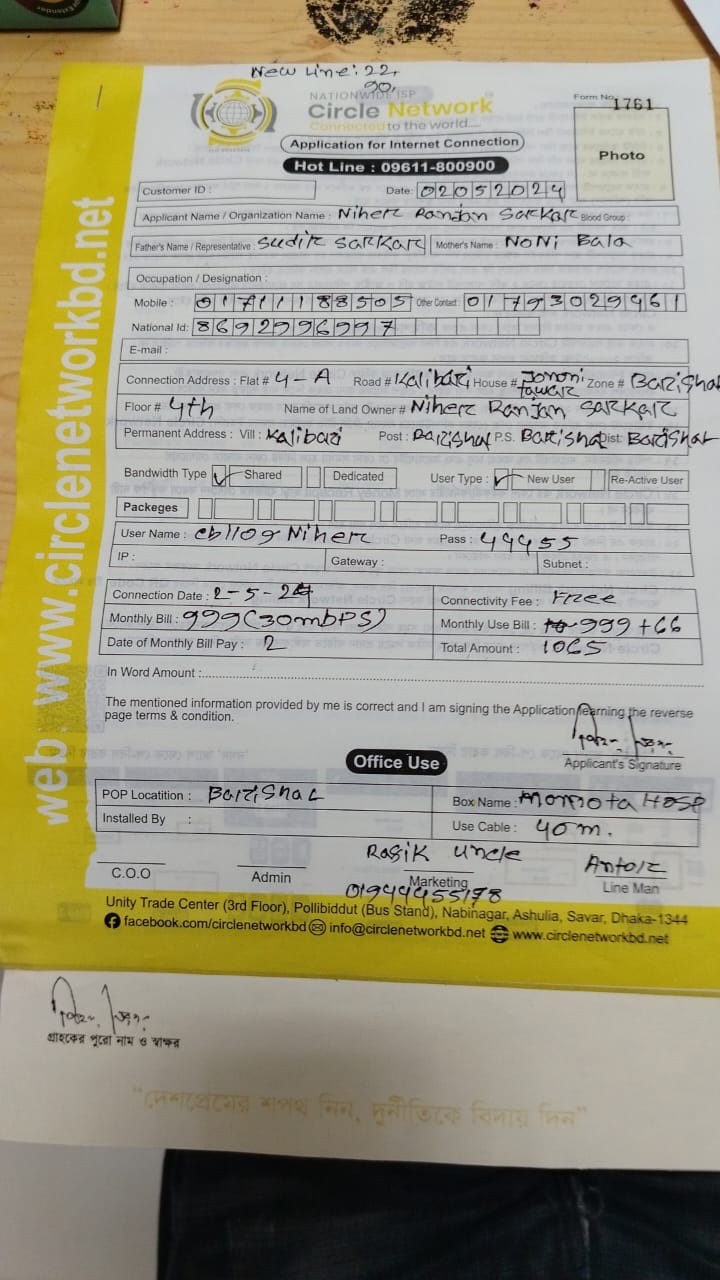 New Line: 22,
90,
NATIONWIDE ISP
Circle Network
Connected to the world....
Form No. 1761
Application for Internet Connection
Hot Line : 09611-800900
Photo
Customer ID :
Date: 02052024
Applicant Name / Organization Name : Niher Ranjan Sarkar Blood Group :
Father's Name / Representative : Sudir Sarkar Mother's Name : Noni Bala
Occupation / Designation :
Mobile : 01711188505 Other Contact : 01793029461
National Id: 8692996997
E-mail :
Connection Address : Flat # 4-A Road # Kalibari House # Jononi Tawar Zone # Barishal
Floor # 4th Name of Land Owner # Niher Ranjan Sarkar
Permanent Address : Vill : Kalibari Post : Barishal P.S. Barishal Dist: Barishal
Bandwidth Type Shared Dedicated User Type : New User Re-Active User
Packeges
User Name : cbl109 Niher Pass : 44455
IP : Gateway : Subnet :
Connection Date : 2-5-24 Connectivity Fee : Free
Monthly Bill : 999 (30mbPS) Monthly Use Bill : 999 +66
Date of Monthly Bill Pay : 2 Total Amount : 1065
In Word Amount :
The mentioned information provided by me is correct and I am signing the Application learning the reverse
page terms & condition.
Applicant's Signature
Office Use
POP Locatition : Barishal Box Name : Momota Hosp
Installed By : Use Cable : 40 m.
Rasik Uncle Antor
C.O.O Admin Marketing Line Man
01944455178
Unity Trade Center (3rd Floor), Pollibiddut (Bus Stand), Nabinagar, Ashulia, Savar, Dhaka-1344
facebook.com/circlenetworkbd info@circlenetworkbd.net www.circlenetworkbd.net
web www.circlenetworkbd.net
গ্রাহকের পুরো নাম ও স্বাক্ষর
"দেশপ্রেমের শপথ নিন, দুর্নীতিকে বিদায় দিন"